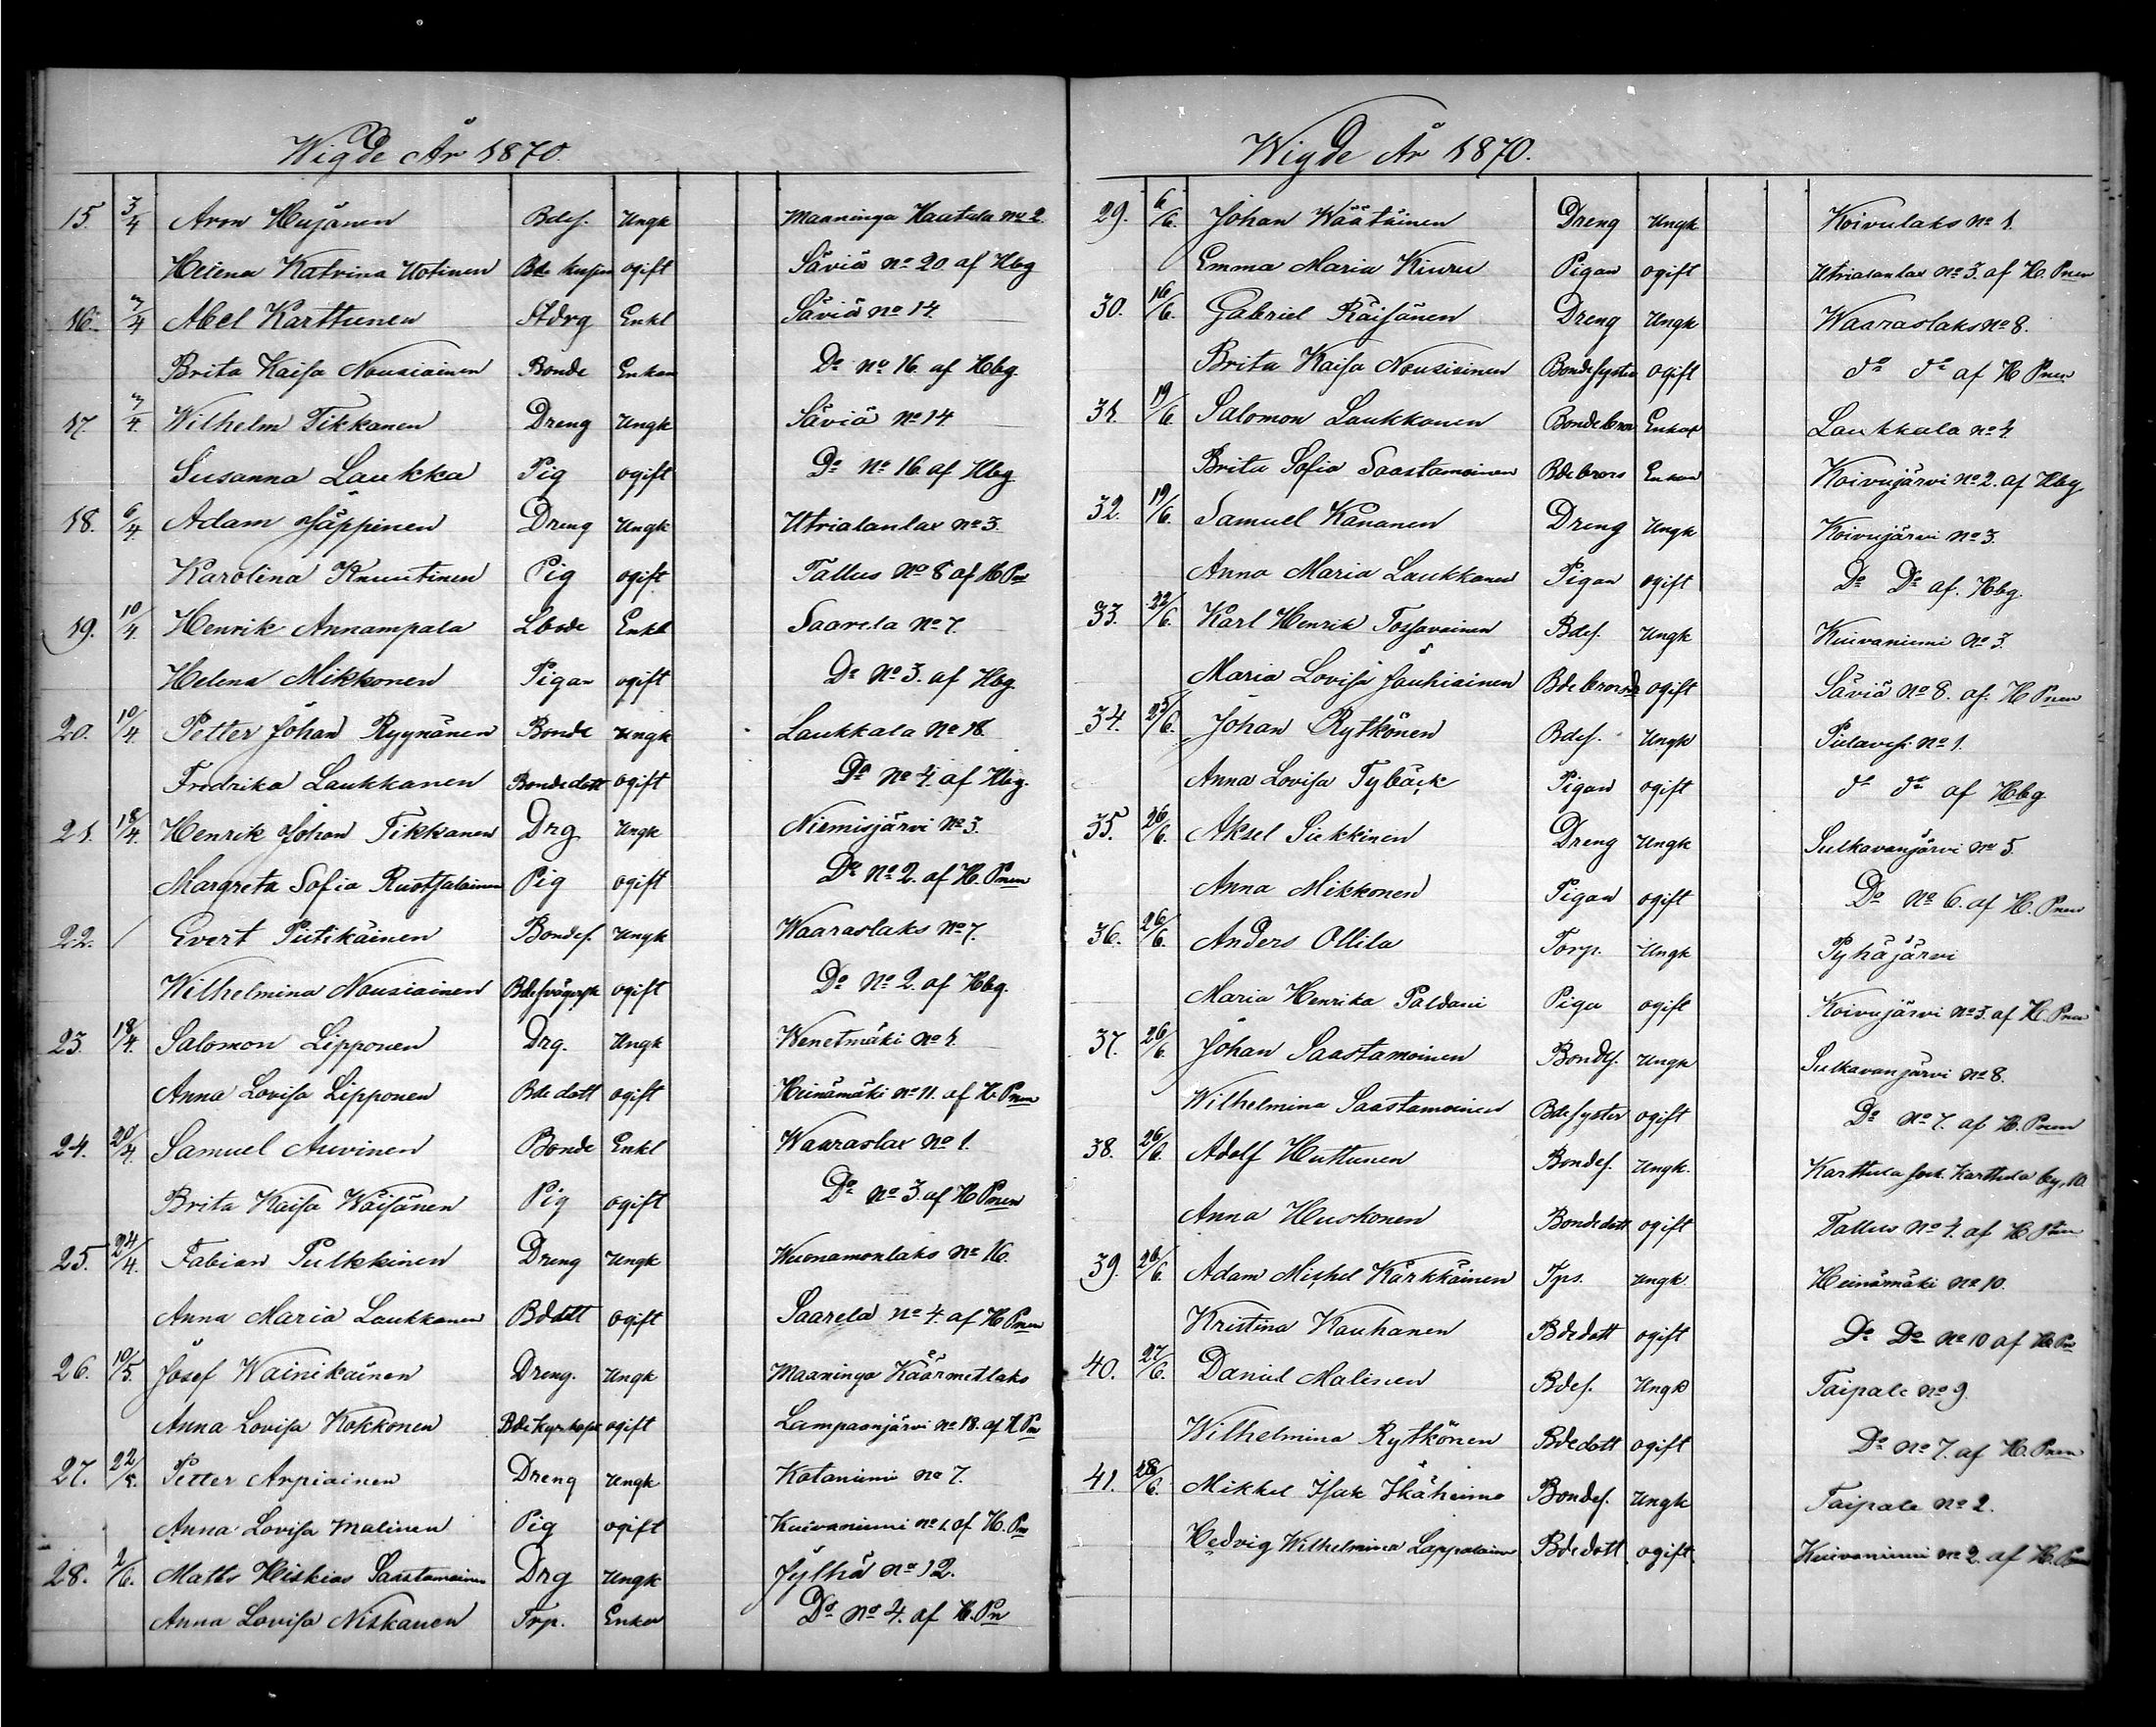 Wigde År 1870.
15. 3/4 Aron Hujanen Bdes. Ungk Maaninga Haatala No 2.
Helena Katrina Uotinen Bde ogift Säviä No 20. af Hbg
16. 3/4 Abel Karttunen Stdrg Enkl Säviä No 14.
Brita Kaisa Nousiainen Bonde Enkan Do No 16. af Hbg.
17. 3/4. Wilhelm Tikkanen Dreng Ungk Säviä No 14
Susanna Laukka Pig ogift Do No 16. af Hbg
18. 6/4. Adam Jäppinen Dreng Ungk Utrialanlax No 3.
Karolina Knuutinen Pig ogift Tallus No 8 af H Pnn
19. 10/4. Henrik Annampala Lbde Enkl Saarela No 7.
Helena Mikkonen Pigan ogift Do No 3. af Hbg.
20. 10/4. Petter Johan Ryynänen Bonde Ungk Laukkala No 18
Fredrika Laukkanen Bondedott ogift Do No 4. af Hbg.
21. 18/4. Henrik Johan Tikkanen Drg Ungk Niemisjärvi No 3.
Margreta Sofia Ruotsalainen Pig ogift Do No 2. af H. Pnen
22. / Evert Piitikäinen Bondes. Ungk Waaraslaks No 7.
Wilhelmina Nousiainen ogift Do No 2. af Hbg.
23. 18/4. Salomon Lipponen Drg. Ungk Wenetmäki No 4.
Anna Lovisa Lipponen Bde dott ogift Heinämäki No 11. af H. Pnen
24. 20/4. Samuel Auvinen Bonde Enkl Waaraslax No 1.
Brita Kaisa Wäisänen Pig ogift Do No 3. af H Pnen
25. 24/4. Fabian Pulkkinen Dreng Ungk Wuonamonlaks No 16.
Anna Maria Laukkanen Bddott ogift Saarela No 4. af H Pnen
26. 10/5. Josef Wainikainen Dreng. Ungk Maaninga Käärmetlaks
Anna Lovisa Kokkonen ogift Lampaanjärvi No 18. af H Pn
27. 22/5. Petter Arpiainen Dreng Ungk Kotaniemi No 7.
Anna Lovisa Malinen Pig ogift Kuivaniemi No 1. af H. Pn
28. 2/6. Matts Hiskias Saastamoinen Drg Ungk Jylhä No 12.
Anna Lovisa Niskanen Trp. Enka Do No 4. af H. Pn
Wigde År 1870.
29. 6/6. Johan Wäätäinen Dreng Ungk Koivulaks No 1.
Emma Maria Kiuru Pigan ogift Utrialanlax No 3. af H. Pnen
30. 16/6. Gabriel Räisänen Dreng Ungk Waaraslaks No 8.
Brita Kaisa Nousiainen Bondesyster ogift do do af H Pnen
31. 19/6. Salomon Laukkanen Bondebror Enkl Laukkala No 4.
Brita Sofia Saastamoinen Bdebrors Enkan Koivujärvi No 2. af Hbg
32. 19/6. Samuel Kananen Dreng Ungk Koivujärvi No 3.
Anna Maria Laukkanen Pigan ogift Do Do af. Hbg.
33. 22/6. Karl Henrik Tossavainen Bdes. Ungk Kuivaniemi No 3.
Maria Lovisa Jauhiainen Bdebrorsdr ogift Säviä No 8. af. H Pnen
34. 25/6. Johan Rytkönen Bdes. Ungk Pielavesi No 1.
Anna Lovisa Tybäck Pigan ogift do do af Hbg
35. 26/6. Aksel Siekkinen Dreng Ungk Sulkavanjärvi No 5.
Anna Mikkonen Pigan ogift Do No 6. af H. Pnen
36. 26/6. Anders Ollila Torp. Ungk Pyhäjärvi
Maria Henrika Paldani Piga ogift Koivujärvi No 3. af H. Pnen
37. 26/6. Johan Saastamoinen Bondes. Ungk Sulkavanjärvi No 8.
Wilhelmina Saastamoinen Bdesyster ogift Do No 7. af H. Pnen
38. 26/6. Adolf Huttunen Bondes. Ungk. Karttula Karttula by 10.
Anna Huskonen Bondedott ogift Tallus No 4. af H. Pnn
39. 26/6. Adam Mishel Kärkkäinen Tps. Ungk. Heinämäki No 10.
Kristina Kauhanen Bdedott ogift Do Do No 10 af H. Pn
40. 27/6. Daniel Malinen Bdes. Ungk Taipale No 9.
Wilhelmina Rytkönen Bdedott ogift Do No 7. af H. Pnen
41. 28/6. Mikkel Isak Ikäheimo Bondes. Ungk Taipale No 2.
Hedvig Wilhelmina Lappalainen Bdedott ogift Kuivaniemi No 2. af H. Pnen